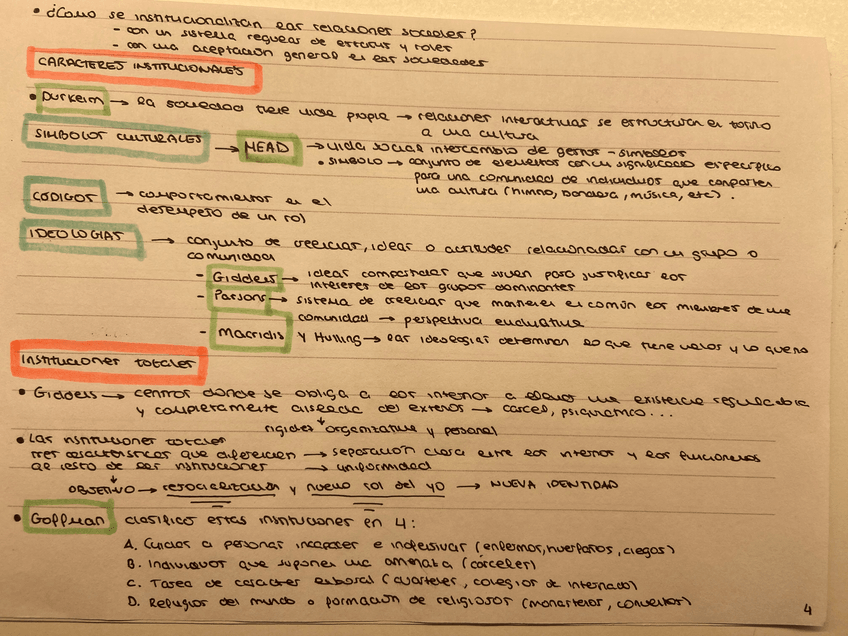 • ¿Como se institucionalizan las relaciones sociales?
- con un sistema regular de estatus y roles
- con una aceptación general en las sociedades
CARACTERES INSTITUCIONALES
• Durkeim → la sociedad tiene vida propia → relaciones interactivas se estructuran en torno
a una cultura
SIMBOLOS CULTURALES → MEAD → vida social intercambio de gestos - simbolos
• SIMBOLO → conjunto de elementos con un significado especifico
para una comunidad de individuos que comparten
una cultura (himno, bandera, música, etc).
CÓDIGOS → comportamientos en el
desempeño de un rol
IDEOLOGIAS → conjunto de creencias, ideas o actitudes relacionadas con un grupo o
comunidad
- Giddens → ideas compartidas que sirven para justificar los
intereses de los grupos dominantes
- Parsons → sistema de creencias que mantienen en común los miembros de una
comunidad → perspectiva evaluativa
- Macridis y Hulling → las ideologias determinan lo que tiene valor y lo que no
Instituciones totales
• Giddens → centros donde se obliga a los internos a llevar una existencia regulable
y completamente aislada del exterior → carcel, psiquiatrico...
rigidez organizativa y personal
• Las instituciones totales
tres características que diferencian → separación clara entre los internos y los funcionarios
de resto de las instituciones → uniformidad
OBJETIVO → resocialización y nuevo rol del yo → NUEVA IDENTIDAD
• Goffman clasificó estas instituciones en 4:
A. Cuidar a personas incapaces e inofensivas (enfermos, huerfanos, ciegos)
B. Individuos que suponen una amenaza (cárceles)
C. Tarea de caracter laboral (cuarteles, colegios de internado)
D. Refugios del mundo o formación de religiosos (monasterios, conventos)
4